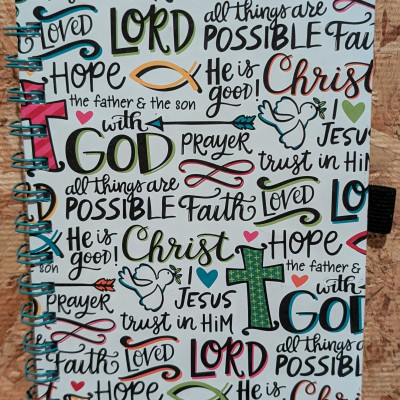 Loved LORD all things are
POSSIBLE Fai
HOPE He is
good! Christ
the father & the son
with
GOD PRAYER I ♥
JESUS
trust in HiM
all things are
POSSIBLE Faith LOVED LO
He is
good! Christ HOPE
son I ♥ the father &
PRAYER JESUS with
trust in HiM GOD
Faith LOVED LORD all things are
POSSIBL
HOPE He is Chris